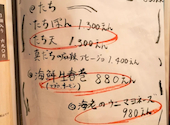 たち
・たちぽん 1,300えん
・たち天 1,300えん
1,400えん
海鮮生春巻 880えん
海老のウニマヨネーズ
980えん